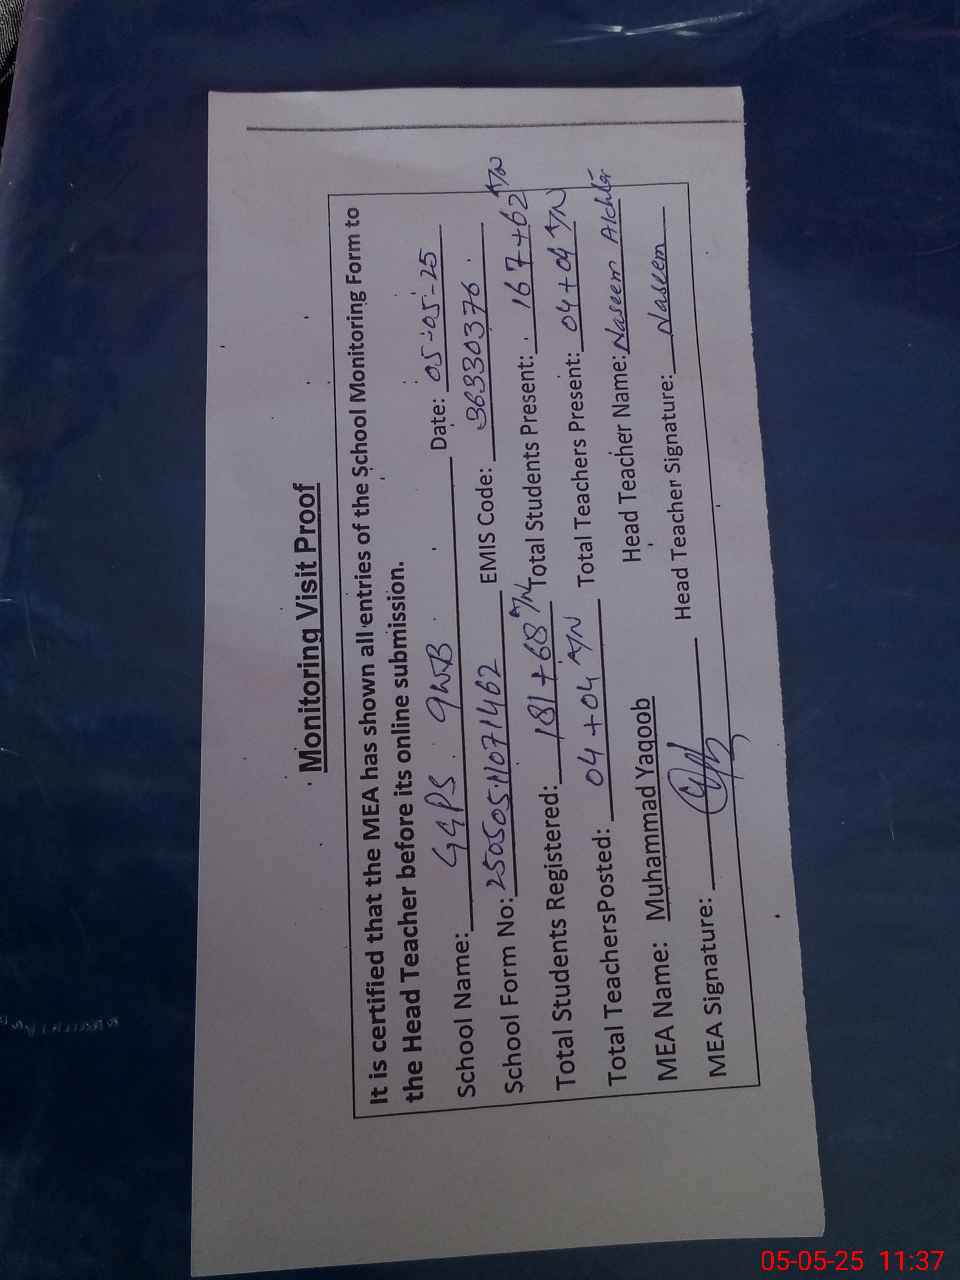 Monitoring Visit Proof
It is certified that the MEA has shown all entries of the School Monitoring Form to
the Head Teacher before its online submission.
School Name: GGPS. 9WB Date: 05-05-25
School Form No: 25050511071462 EMIS Code: 36330376.
Total Students Registered: 181+68 A/N Total Students Present: 167+62 A/N
Total TeachersPosted: 04+04 A/N Total Teachers Present: 04+04 A/N
MEA Name: Muhammad Yaqoob Head Teacher Name: Naseem Akhtar
MEA Signature: Head Teacher Signature: Naseem
05-05-25 11:37